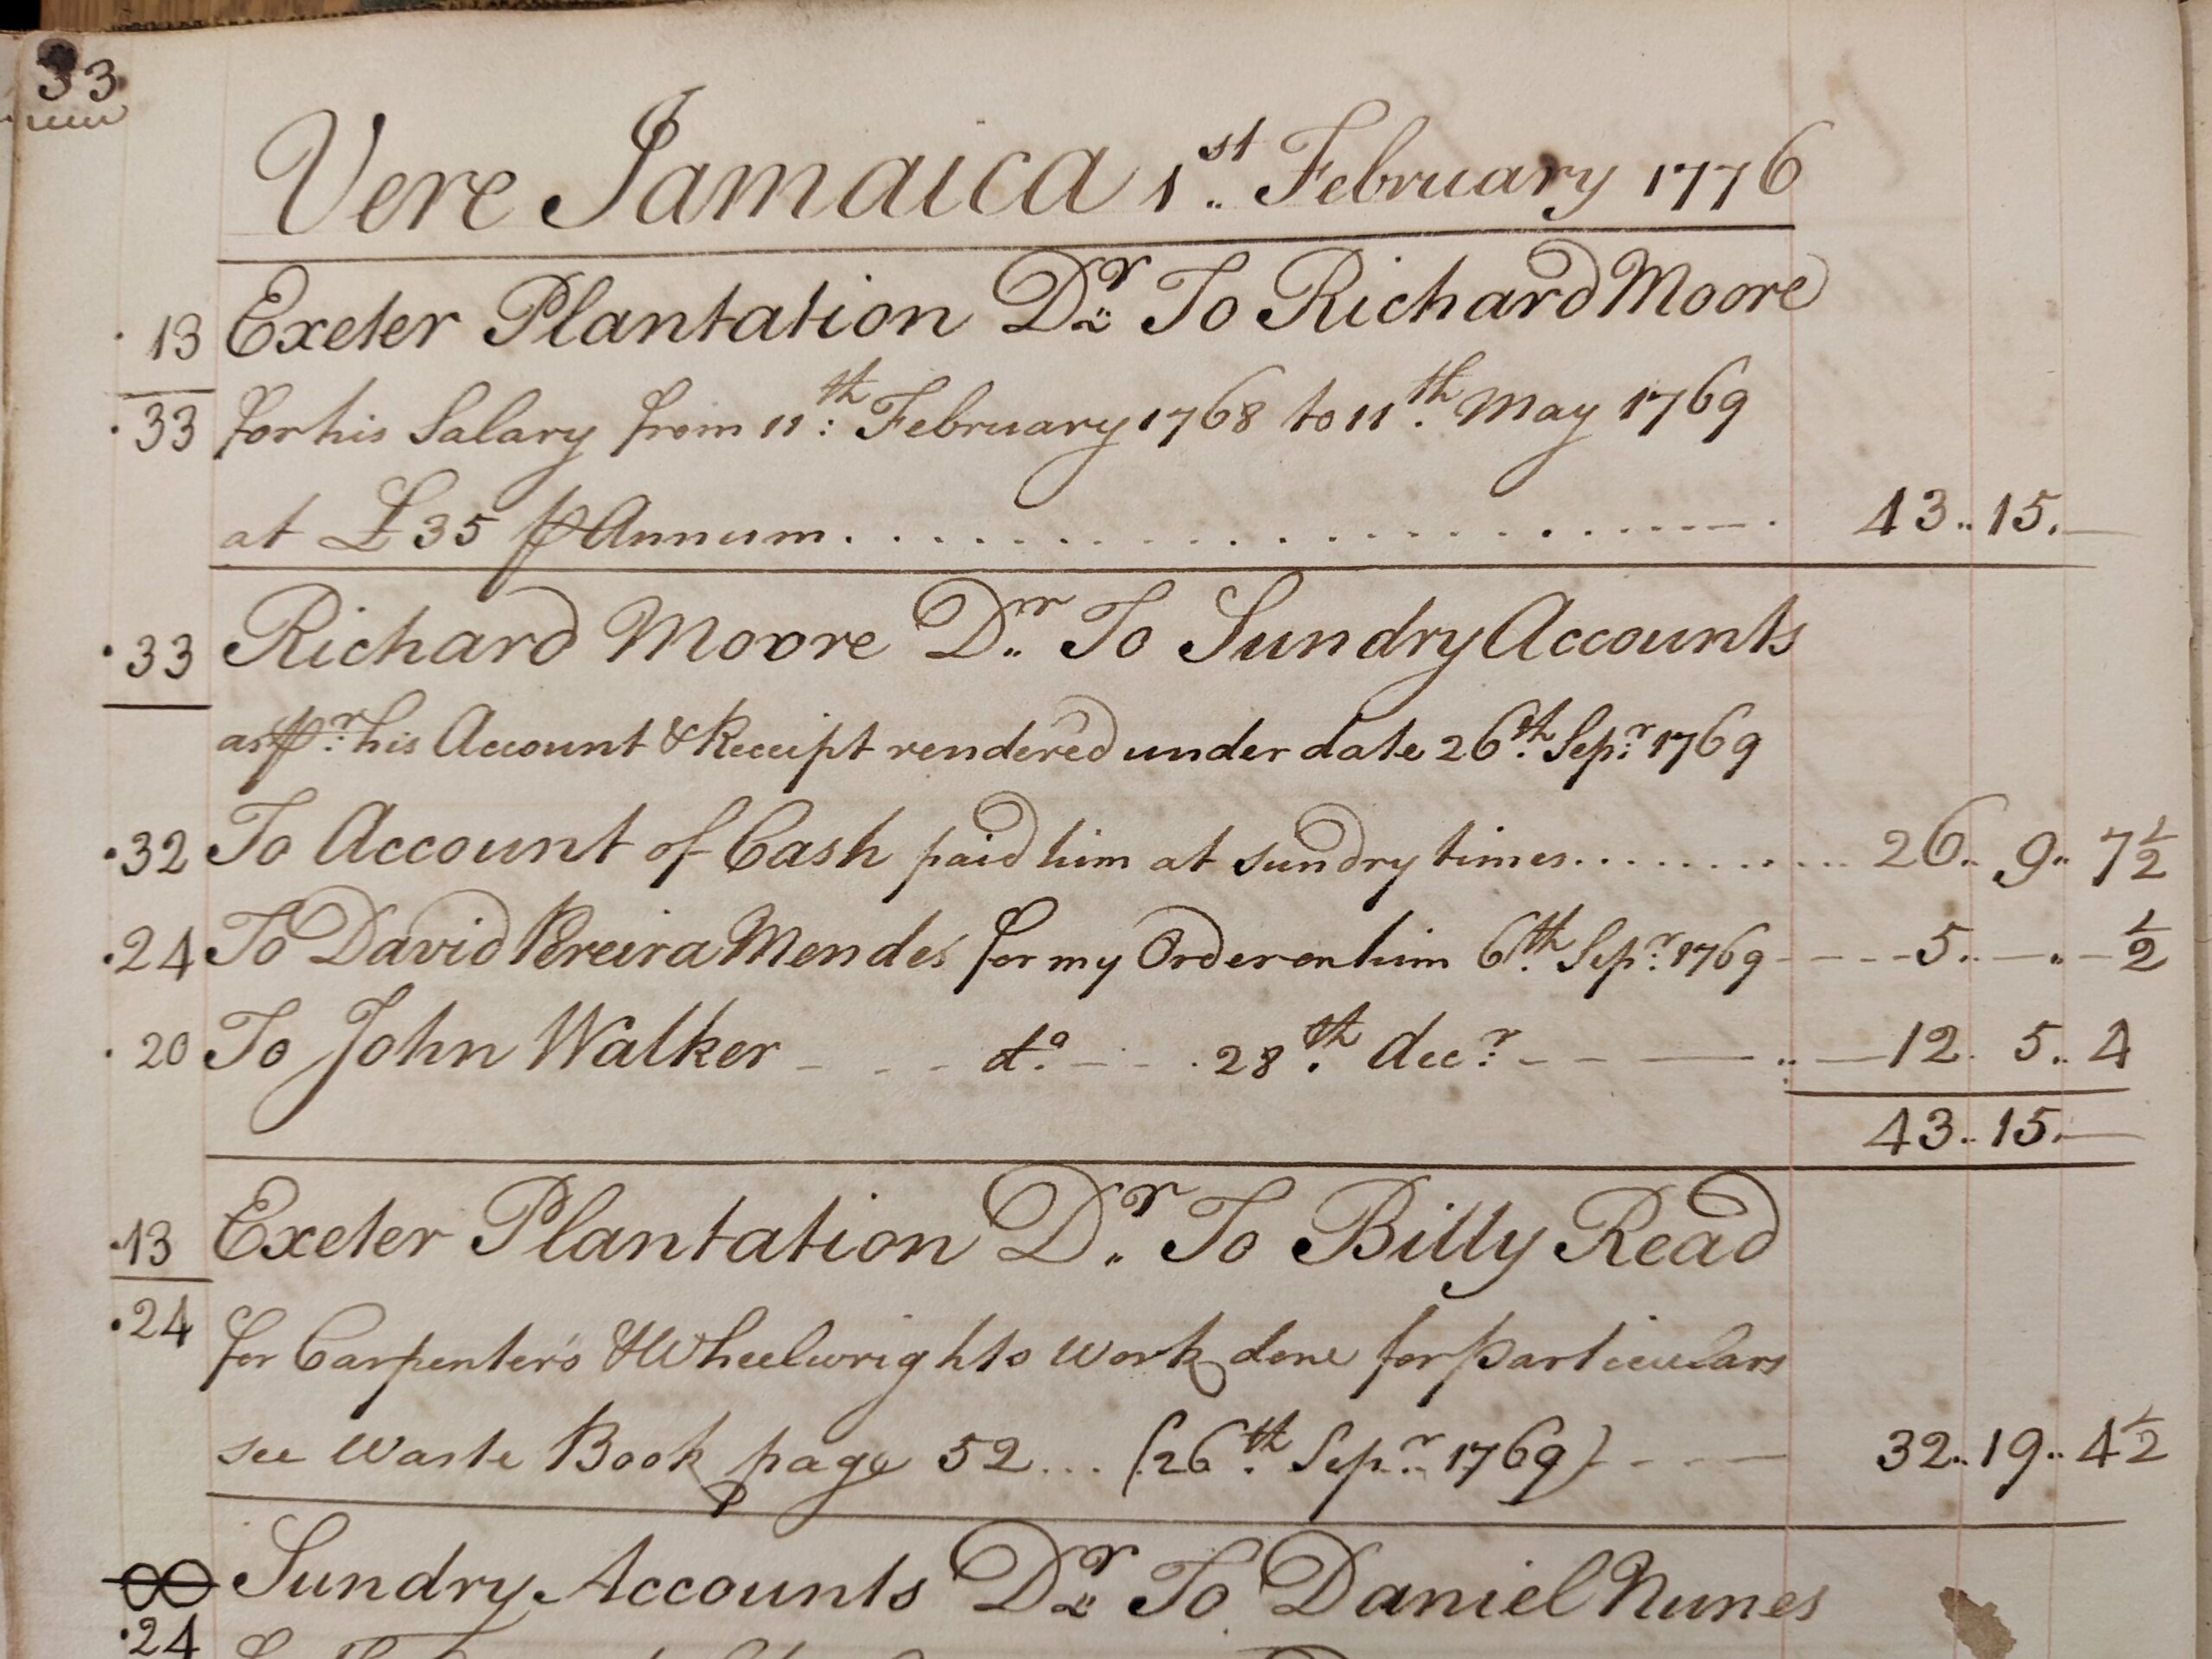 33
Vere Jamaica 1st.. February 1776
13 Exeter Plantation Dr.. To Richard Moore
33 for his Salary from 11th: February 1768 to 11th. May 1769
at £35 ⅌ Annum . . . . . . . . . . . . . . . . . . . . 43.. 15. —
33 Richard Moore Dr.. To Sundry Accounts
as pr: his Account & Receipt render'd under date 26th. Sepr: 1769
32 To Account of Cash paid him at sundry times . . . . . . . . . . . 26.. 9.. 7½
24 To David Pereira Mendes for my Order on him 6th. Sepr: 1769 - - - - 5.. — .. — ½
20 To John Walker - - - - do. - - - 28th. decr: - - — — .. — 12. 5.. 4
43.. 15. —
13 Exeter Plantation Dr.. To Billy Read
24 for Carpenter's & Wheelwrights work done for particulars
see Waste Book page 52... (26th. Sepr. 1769) - - - — 32.. 19.. 4½
Sundry Accounts Dr.. To Daniel Nunes
24